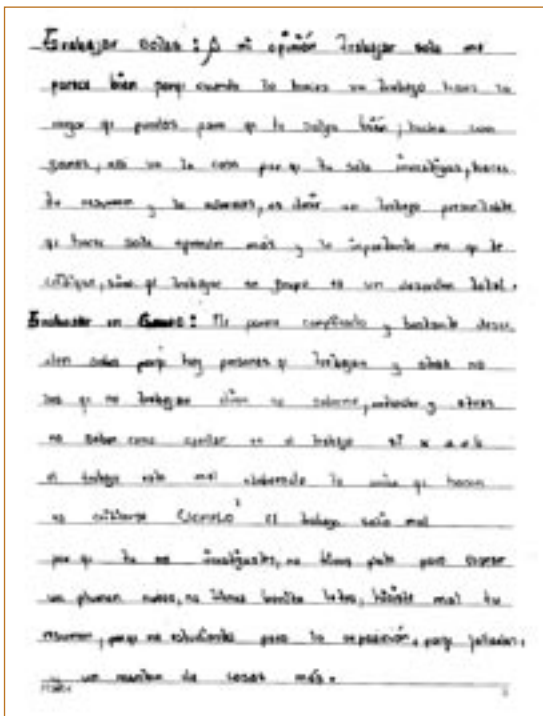 Trabajar Solas: A mi opinión Trabajar sola me
parece bien porq cuando lo haces un Trabajo haces lo
mejor qe puedas para qe te salga bién,
ganas, asi un la cosa por qe tu sola investigas, haces
tu resumen y lo adornas, es decir un Trabajo presentable
qe haces sola aprendes más y lo importante no qe te
critique, sino qe trabajar en grupo es un desorden total.
Trabajar en Grupo: Me parece complicado y bastante desor
den sabes porq hay personas qe Trabajan y otras no
las qe no trabajan dicen no saberse, entender y otras
no saben como ayudar en el trabajo si x a o b
el trabajo esta mal elaborado lo unico qe hacen
es criticarse EJEMPLO: El trabajo salio mal
por qe tu no investigastes, no dites plata para
un plumon nuevo, no tienes bonita letra, hiciste mal tu
resumen, porqe no estudiastes para la exposición, porqe
y un monton de cosas más.